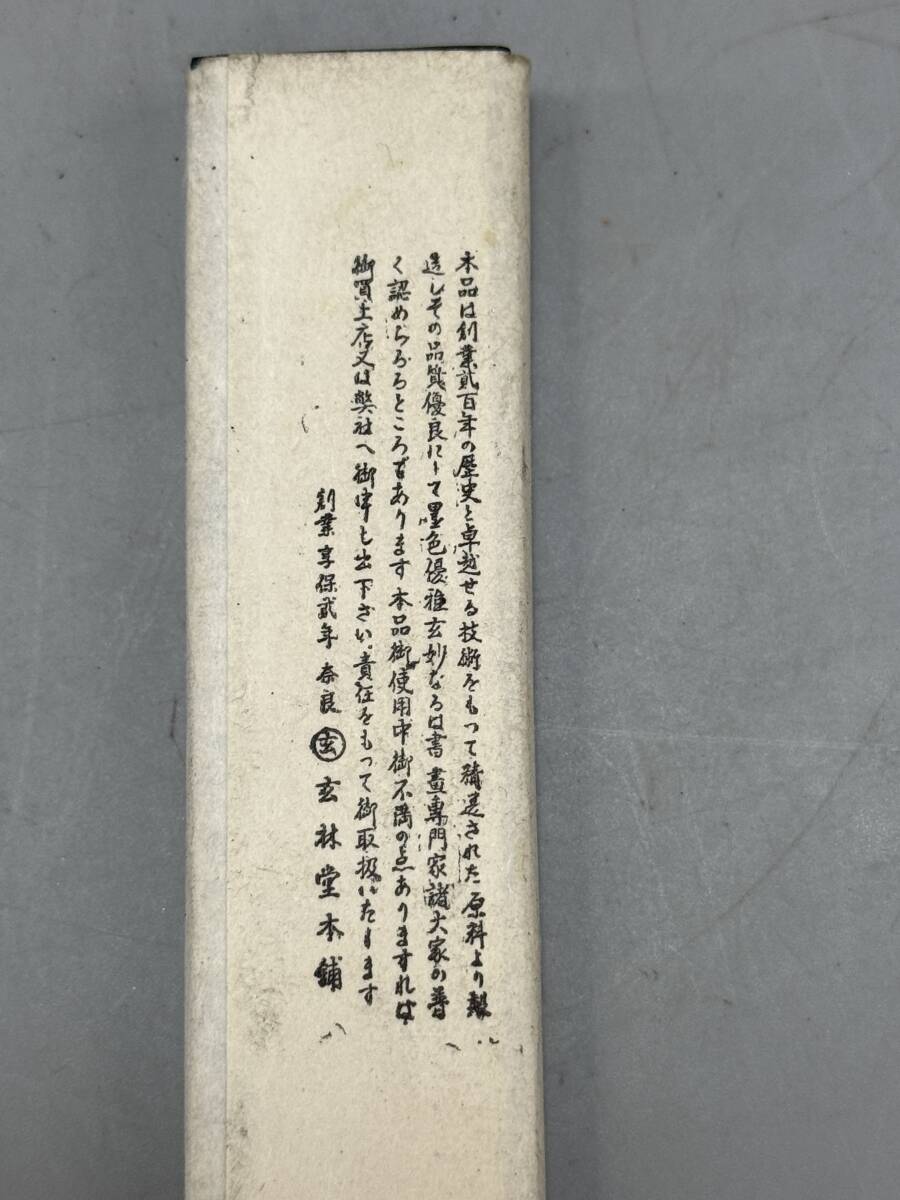 本品は創業貳百年の歴史と卓越せる技術をもって精選された原料より製
造しその品質優良にして墨色優雅玄妙なるは書畫專門家諸大家の普
く認めらるるところであります 本品御使用中御不満の点ありますれば
御買上店又は弊社へ御申し出下さい。責任をもって御取扱いたします
創業享保貳年 奈良 玄 玄林堂本舗